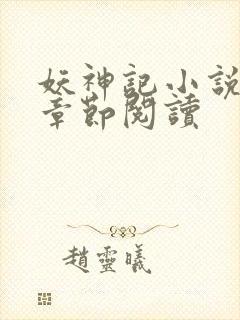 妖神記小說
章節閱讀
趙靈曦